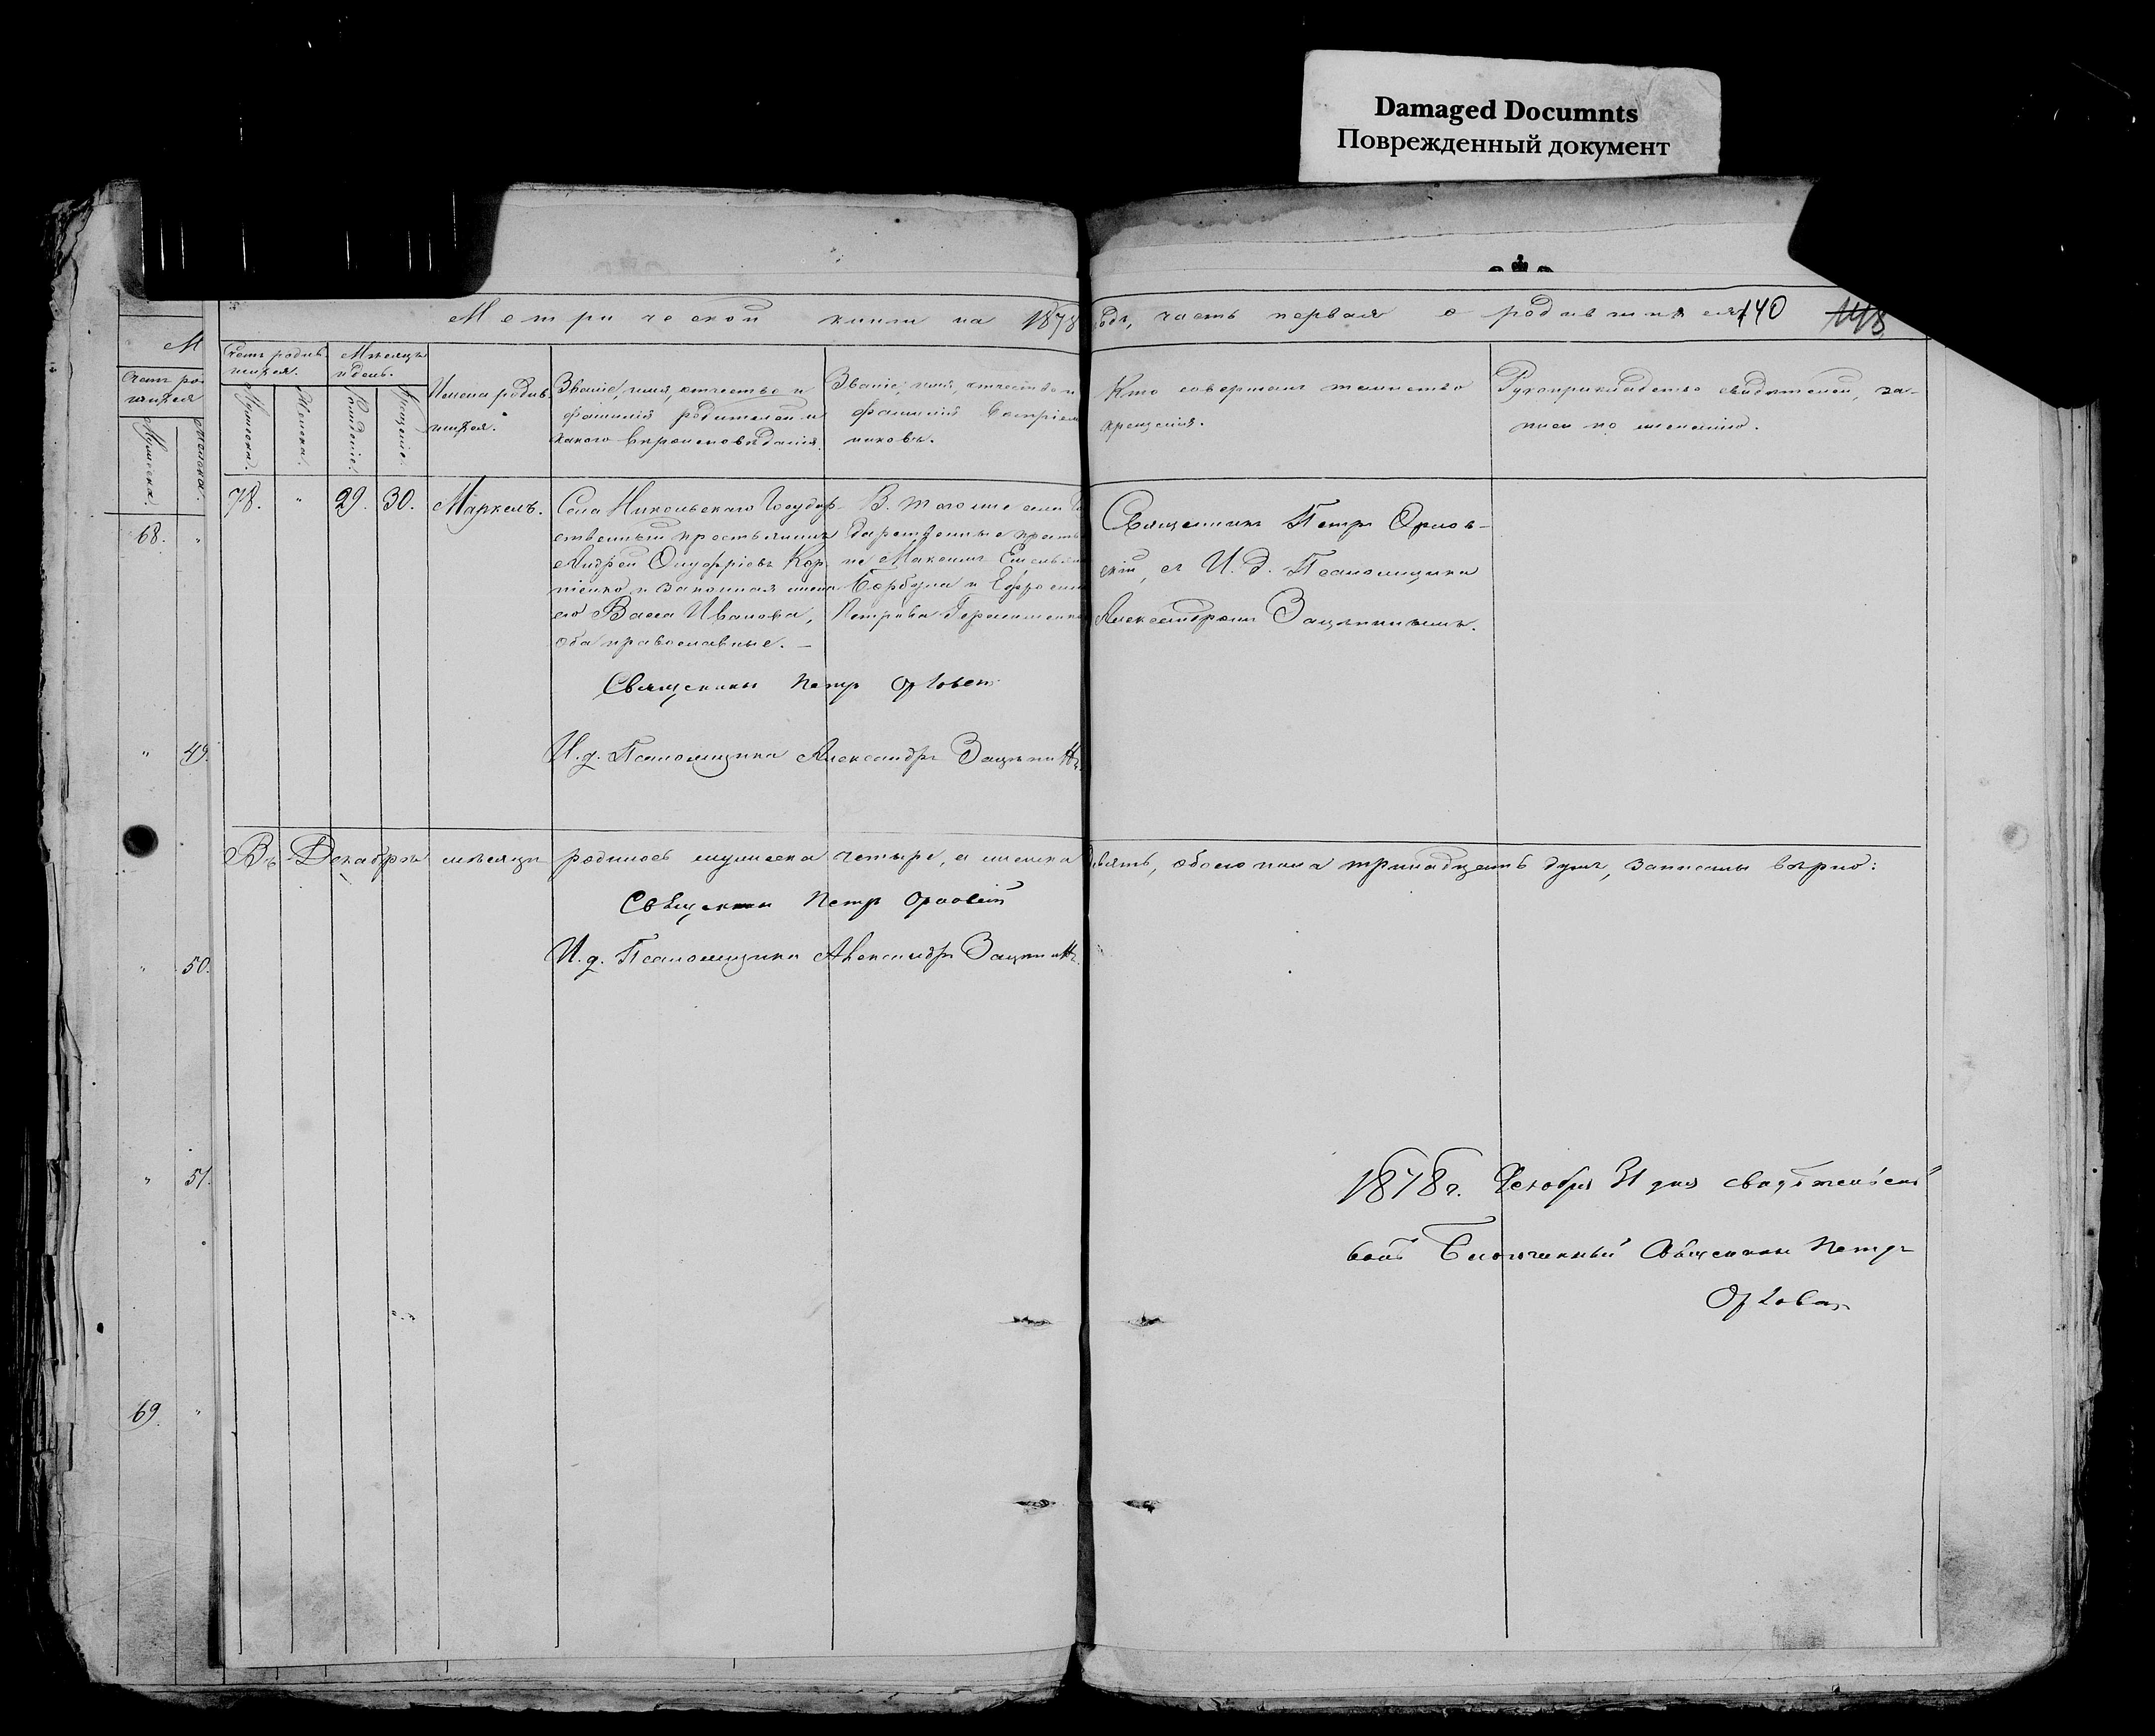 Damaged Documnts
Поврежденный документ
Метрической книги на 1878 годъ, часть первая о родившихся 140
М
Счетъ родившихся.
Мѣсяцъ и день.
Мужеска.
Женска.
Рожденіе.
Крещеніе.
Имена родившихся.
Званіе, имя, отчество и
фамилія родителей и
какого вѣроисповѣданія.
Званіе, имя, отчество и
фамилія воспріем
никовъ.
Кто совершалъ таинство
крещенія.
Рукоприкладство свидѣтелей, за-
писи по желанію.
Счетъ ро-
Мужеска.
Женска.
68. "
" 49.
" 50.
" 51.
69. "
78. " 29. 30. Маркелъ.
Села Никольскаго Государ-
ственный крестьянинъ
Андрей Онуфріевъ Кор-
ніенко и законная жена
его Васса Иванова,
оба православные. —
В. того же села
дарственные кресть
не Максимъ Емельян
Борбула и Ефросин
Петрова Герасименко
Священникъ Петръ Орлов-
скій, съ И. д. Псаломщика
Александромъ Защипинымъ.
Священникъ Петръ Орловскій
И. д. Псаломщика Александръ
Въ Декабрѣ мѣсяцѣ родилось мужеска четыре, а женска девять, обоего пола тринадцать душъ, записаны вѣрно:
Священникъ Петръ Орловскій
И. д. Псаломщика Александръ
1878 г. Декабря 31 дня свидѣтельст
валъ Благочинный Священникъ Петръ
Орловскій